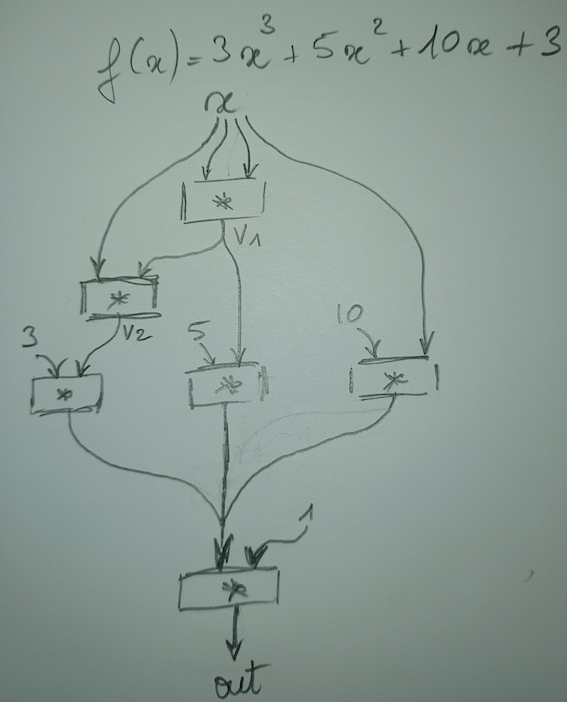 f(x) = 3x³ + 5x² + 10x + 3
x
*
V1
*
V2
3
5
10
*
*
*
1
*
out